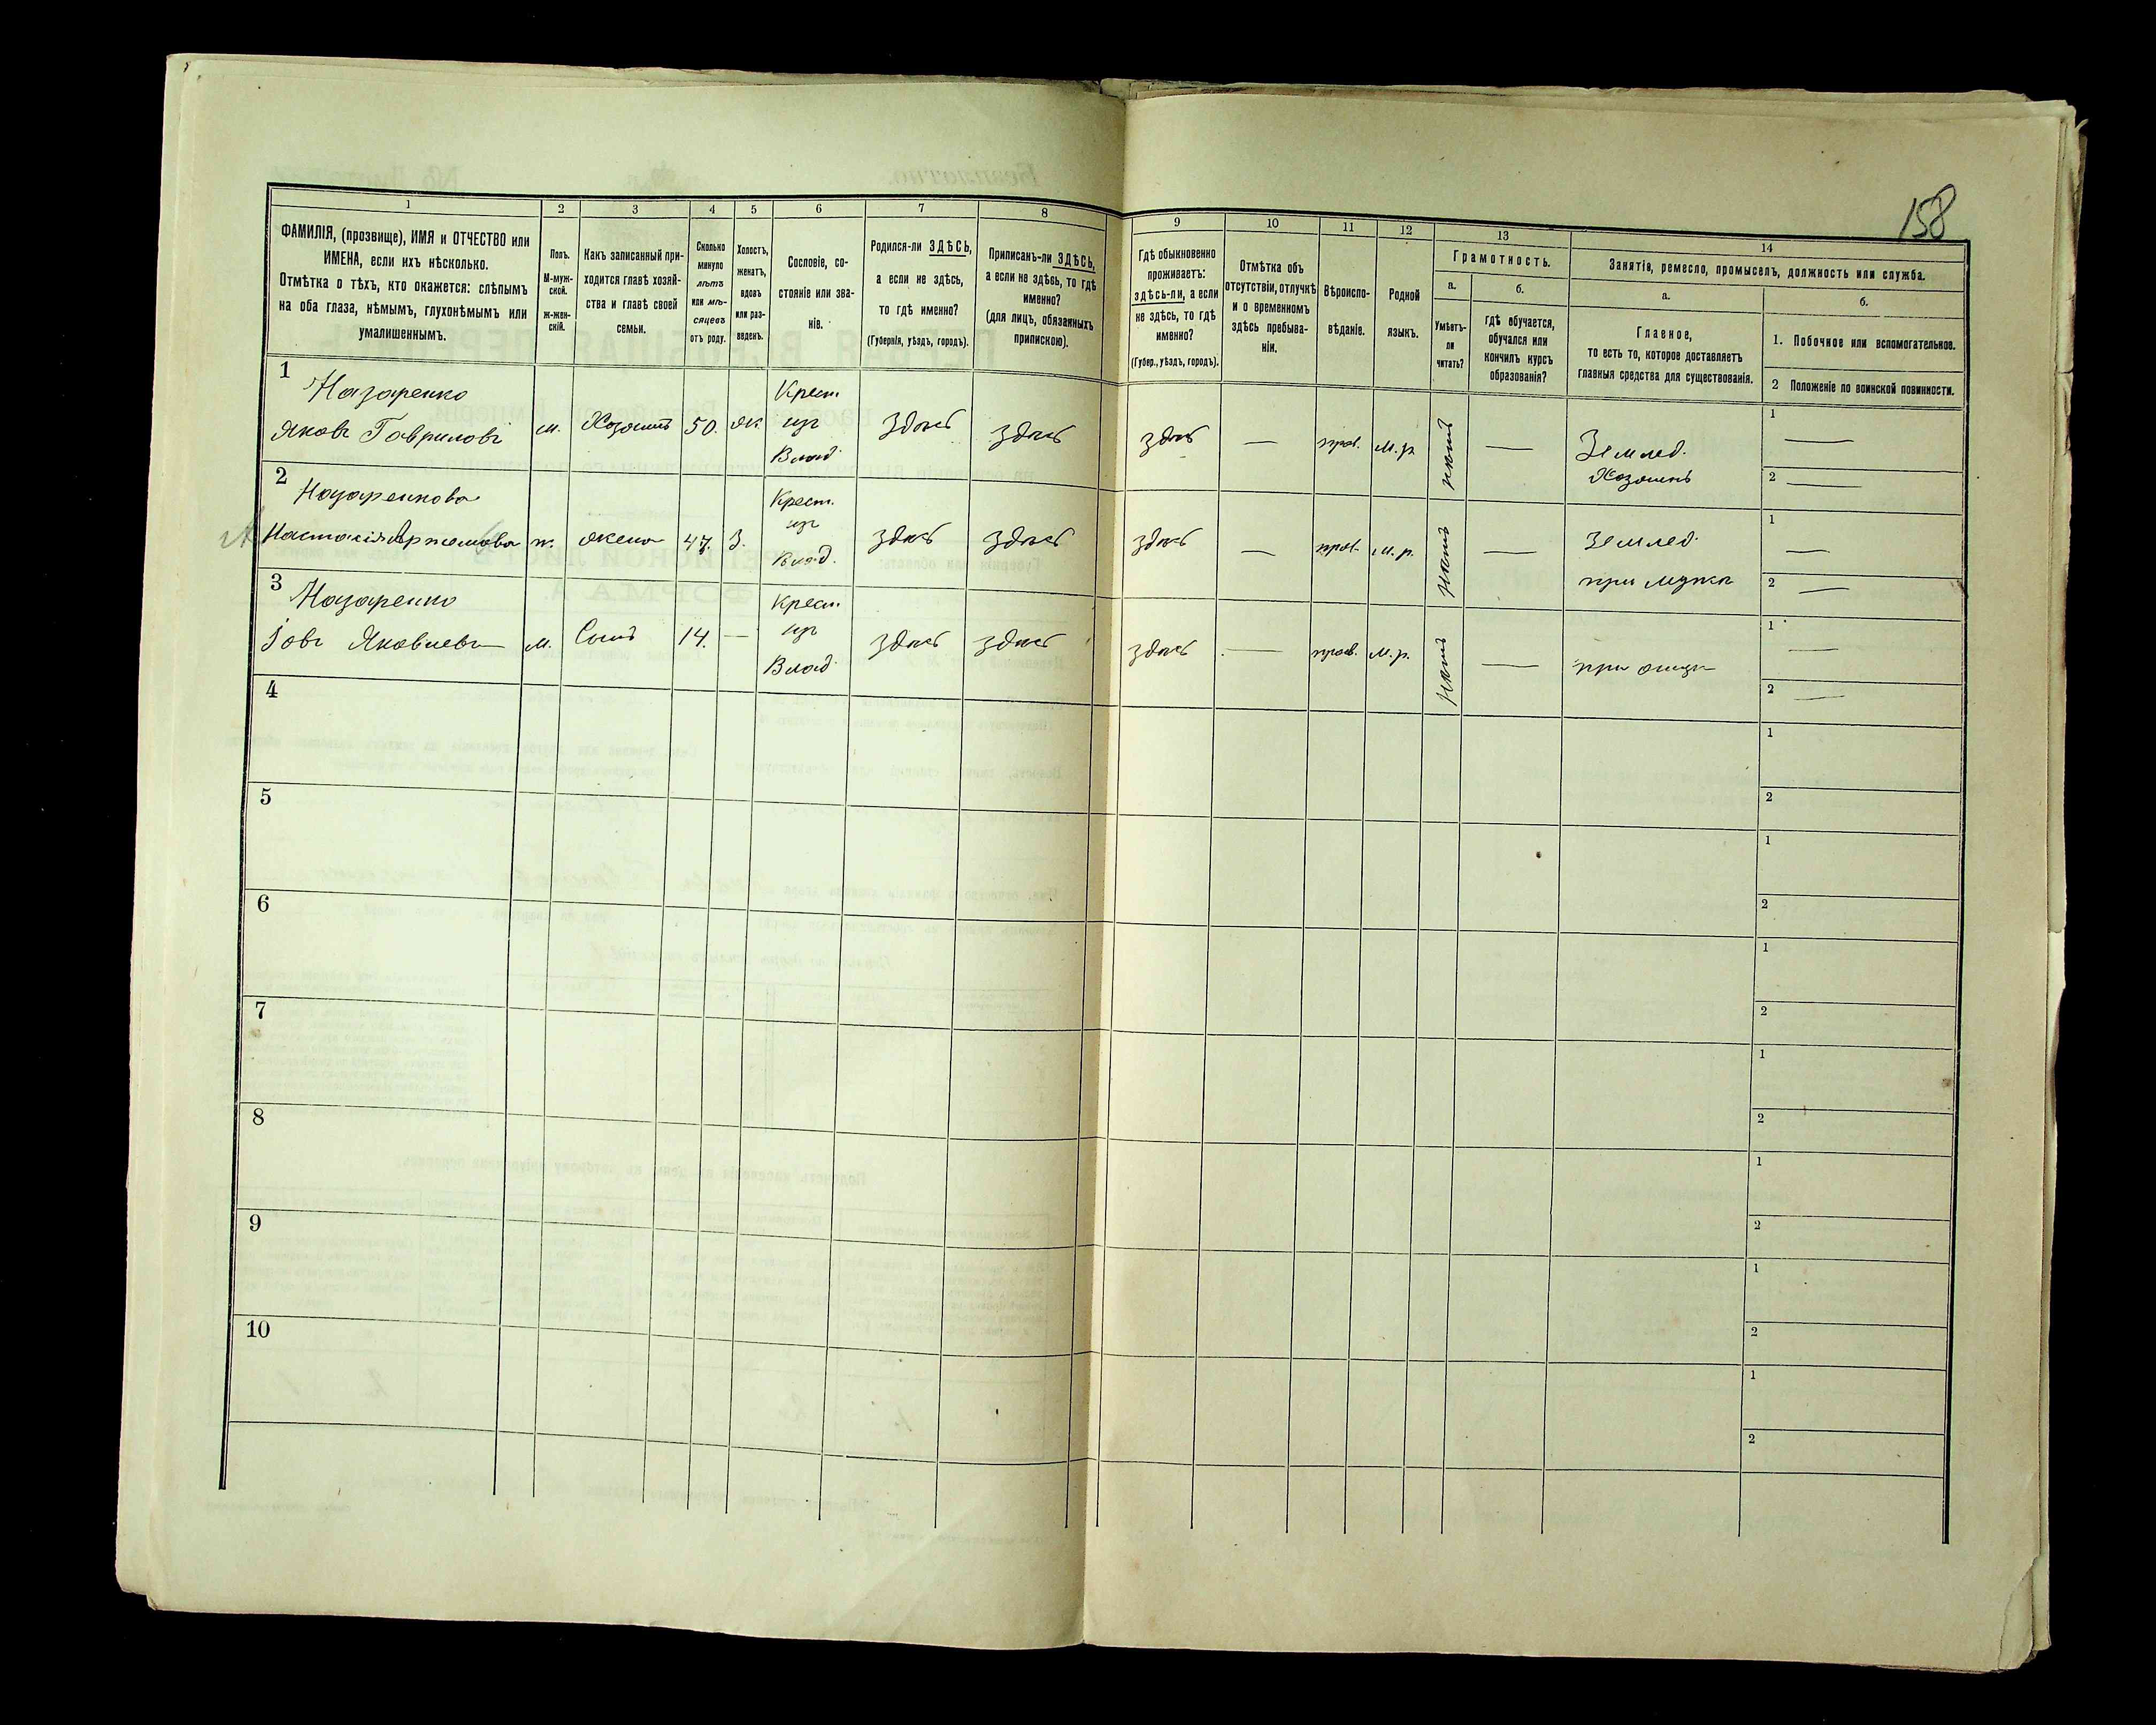 158
1
2
3
4
5
6
7
8
9
10
11
12
13
14
ФАМИЛІЯ, (прозвище), ИМЯ и ОТЧЕСТВО или
ИМЕНА, если ихъ нѣсколько.
Отмѣтка о тѣхъ, кто окажется: слѣпымъ
на оба глаза, нѣмымъ, глухонѣмымъ или
умалишеннымъ.
Полъ.
М-муж-
ской.
ж-жен-
скій.
Какъ записанный при-
ходится главѣ хозяй-
ства и главѣ своей
семьи.
Сколько
минуло
лѣтъ
или мѣ-
сяцевъ
отъ роду.
Холостъ,
женатъ,
вдовъ
или раз-
веденъ.
Сословіе, со-
стояніе или зва-
ніе.
Родился-ли ЗДѢСЬ,
а если не здѣсь,
то гдѣ именно?
(Губернія, уѣздъ, городъ).
Приписанъ-ли ЗДѢСЬ,
а если не здѣсь, то гдѣ
именно?
(для лицъ, обязанныхъ
припискою).
Гдѣ обыкновенно
проживаетъ:
здѣсь-ли, а если
не здѣсь, то гдѣ
именно?
(Губер., уѣздъ, городъ).
Отмѣтка объ
отсутствіи, отлучкѣ
и о временномъ
здѣсь пребыва-
ніи.
Вѣроиспо-
вѣданіе.
Родной
языкъ.
Грамотность.
а.
Умѣетъ-
ли
читать?
б.
гдѣ обучается,
обучался или
кончилъ курсъ
образованія?
Занятіе, ремесло, промыселъ, должность или служба.
а.
Главное,
то есть то, которое доставляетъ
главныя средства для существованія.
б.
1. Побочное или вспомогательное.
2 Положеніе по воинской повинности.
1
Назаренко
Яковъ Гавриловъ
м.
Хозяинъ
50.
ж.
Крест
изъ
Влад.
здѣсь
здѣсь
здѣсь
—
прав.
м.р.
нѣтъ
—
Землед.
Хозяинъ
1 —
2 —
2
Назаренкова
Настасія Артемова
ж.
жена
47.
З.
Крест.
изъ
Влад.
здѣсь
здѣсь
здѣсь
—
прав.
м.р.
нѣтъ
—
Землед.
при мужѣ
1 —
2 —
3
Назаренко
Іовъ Яковлевъ
м.
Сынъ
14.
—
Крест.
изъ
Влад.
здѣсь
здѣсь
здѣсь
—
прав.
м.р.
нѣтъ
—
при отцѣ
1 —
2 —
4
1
2
5
1
2
6
1
2
7
1
2
8
1
2
9
1
2
10
1
2